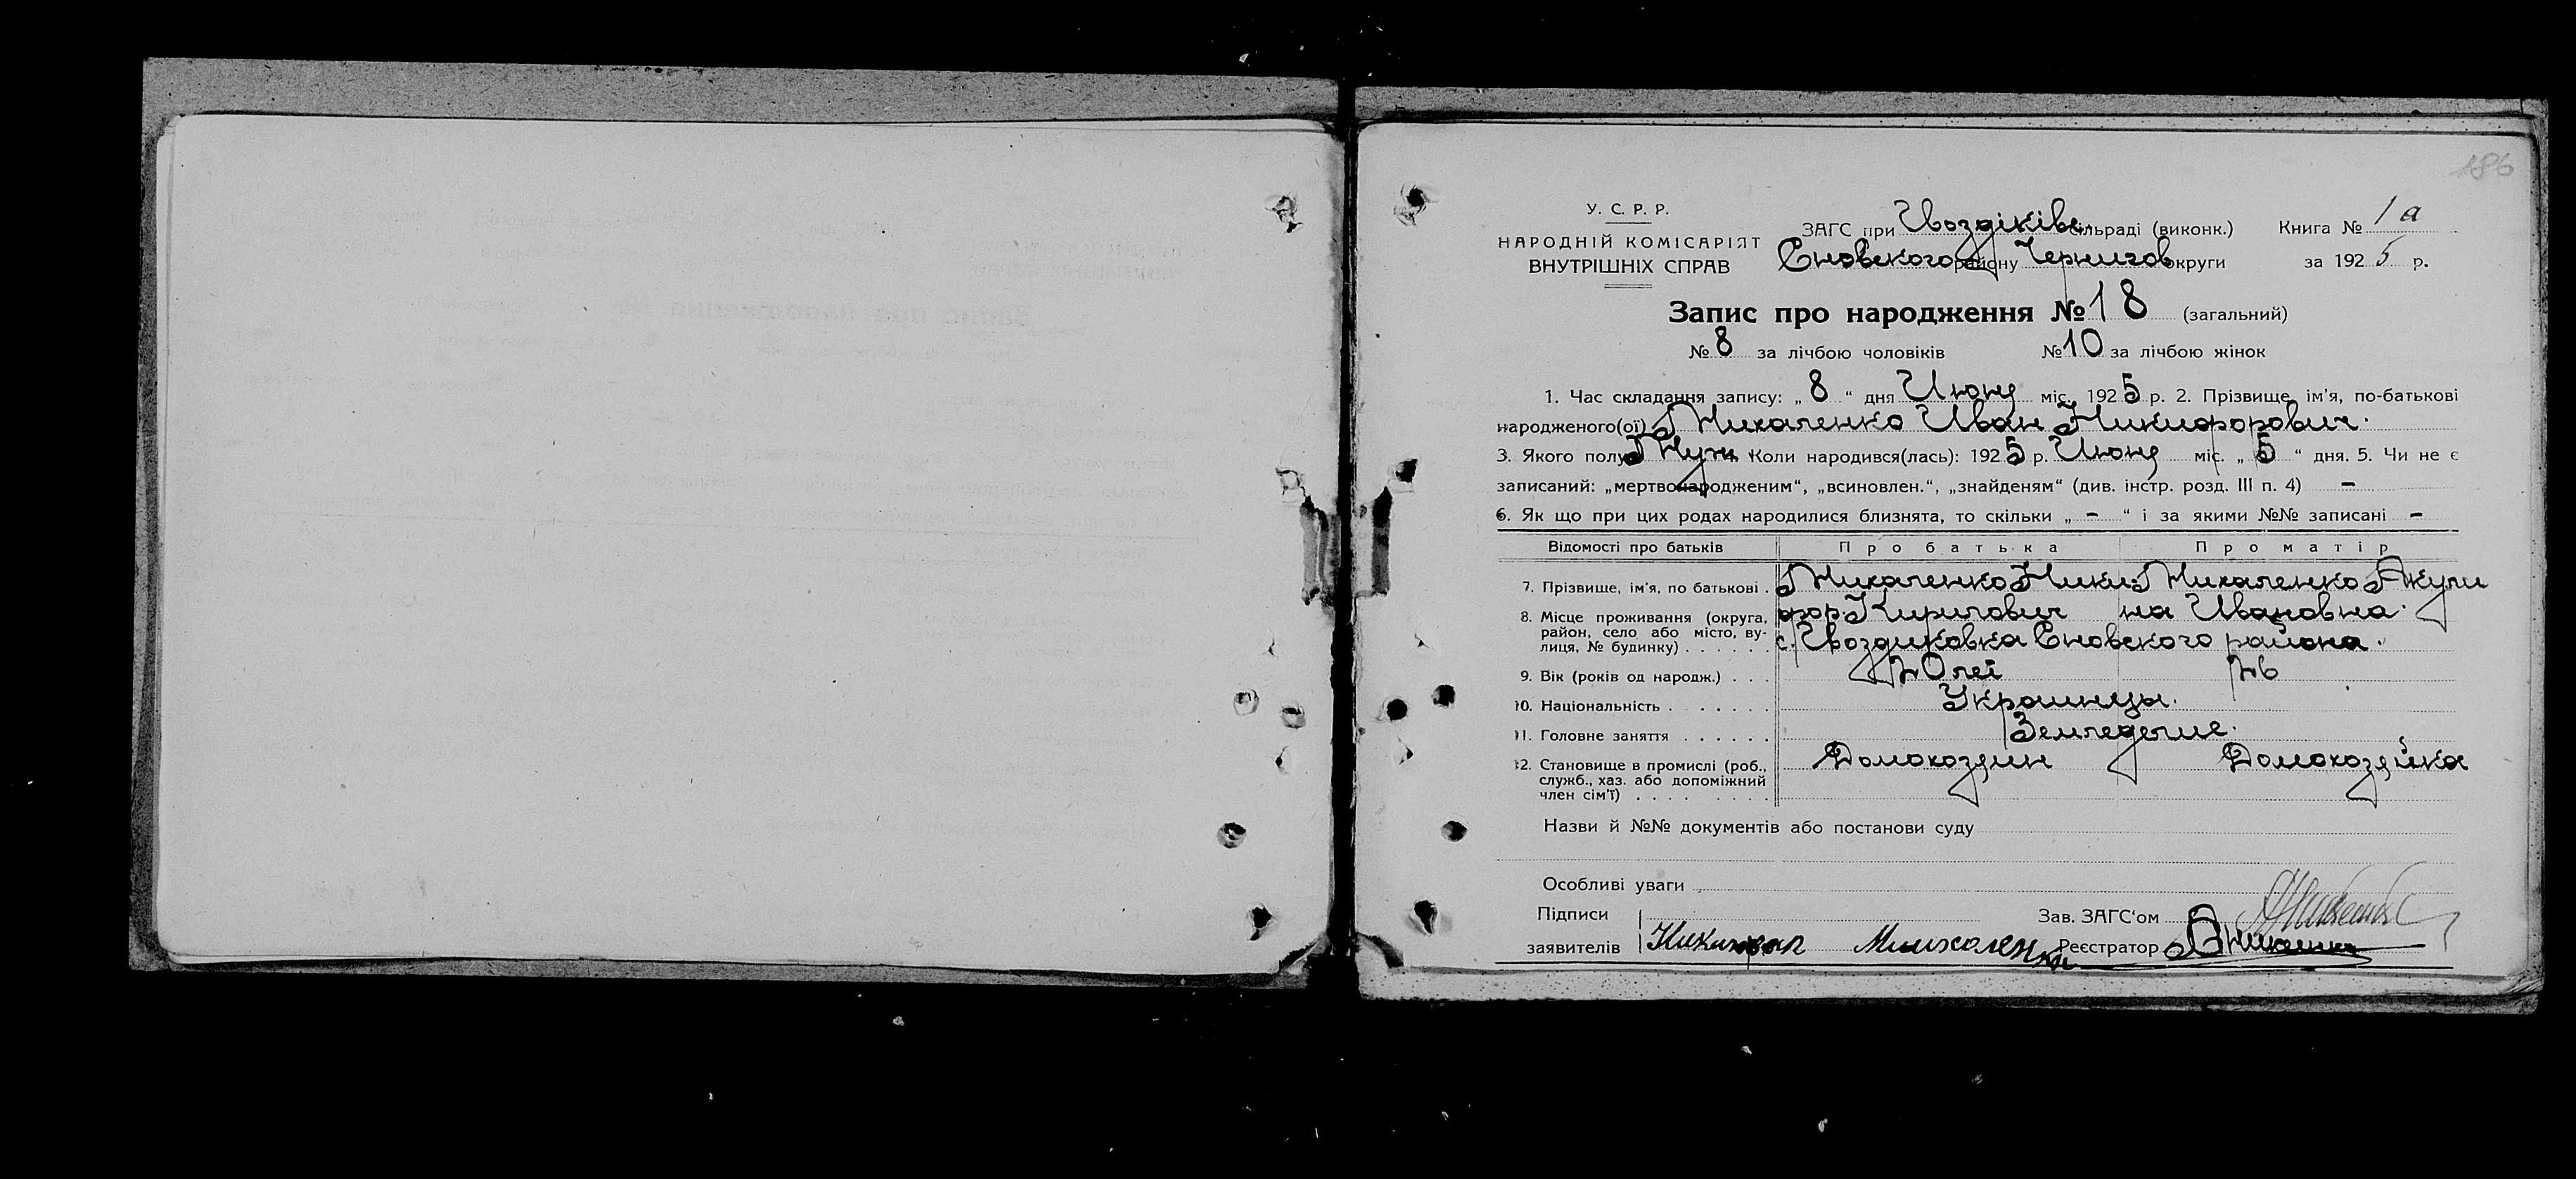 186
У. С. Р. Р.
НАРОДНІЙ КОМІСАРІЯТ
ВНУТРІШНІХ СПРАВ
ЗАГС при Гвоздіківс. сільраді (виконк.) Книга № 1а
Сновского району Чернигов округи за 1925 р.
Запис про народження № 18 (загальний)
№ 8 за лічбою чоловіків № 10 за лічбою жінок
1. Час складання запису: „ 8 “ дня Июня міс. 1925 р. 2. Прізвище, ім'я, по-батькові
народженого(ої) Михаленко Иван Никифорович.
3. Якого полу Муж 4. Коли народився(лась): 1925 р. Июня міс. „ 5 “ дня. 5. Чи не є
записаний: „мертвонародженим“, „всиновлен.“, „знайденям“ (див. інстр. розд. III п. 4) –
6. Як що при цих родах народилися близнята, то скільки „ – “ і за якими №№ записані –
Відомості про батьків Про батька Про матір
7. Прізвище, ім'я, по батькові . Михаленко Ники- Михаленко Акули
8. Місце проживання (округа, фор Кирилович на Ивановна.
район, село або місто, ву- с. Гвоздиковка Сновского района.
лиця, № будинку) . . . . .
9. Вік (років од народж.) . . . 20 лет 26
10. Національність . . . . . . . Украинцы.
11. Головне заняття . . . . . . Земледелие.
12. Становище в промислі (роб., Домохозяин Домохозяйка
служб., хаз. або допоміжний
член сім'ї) . . . . . . . .
Назви й №№ документів або постанови суду
Особливі уваги
Підписи Зав. ЗАГС'ом
заявителів Никифор Михаленко Реєстратор